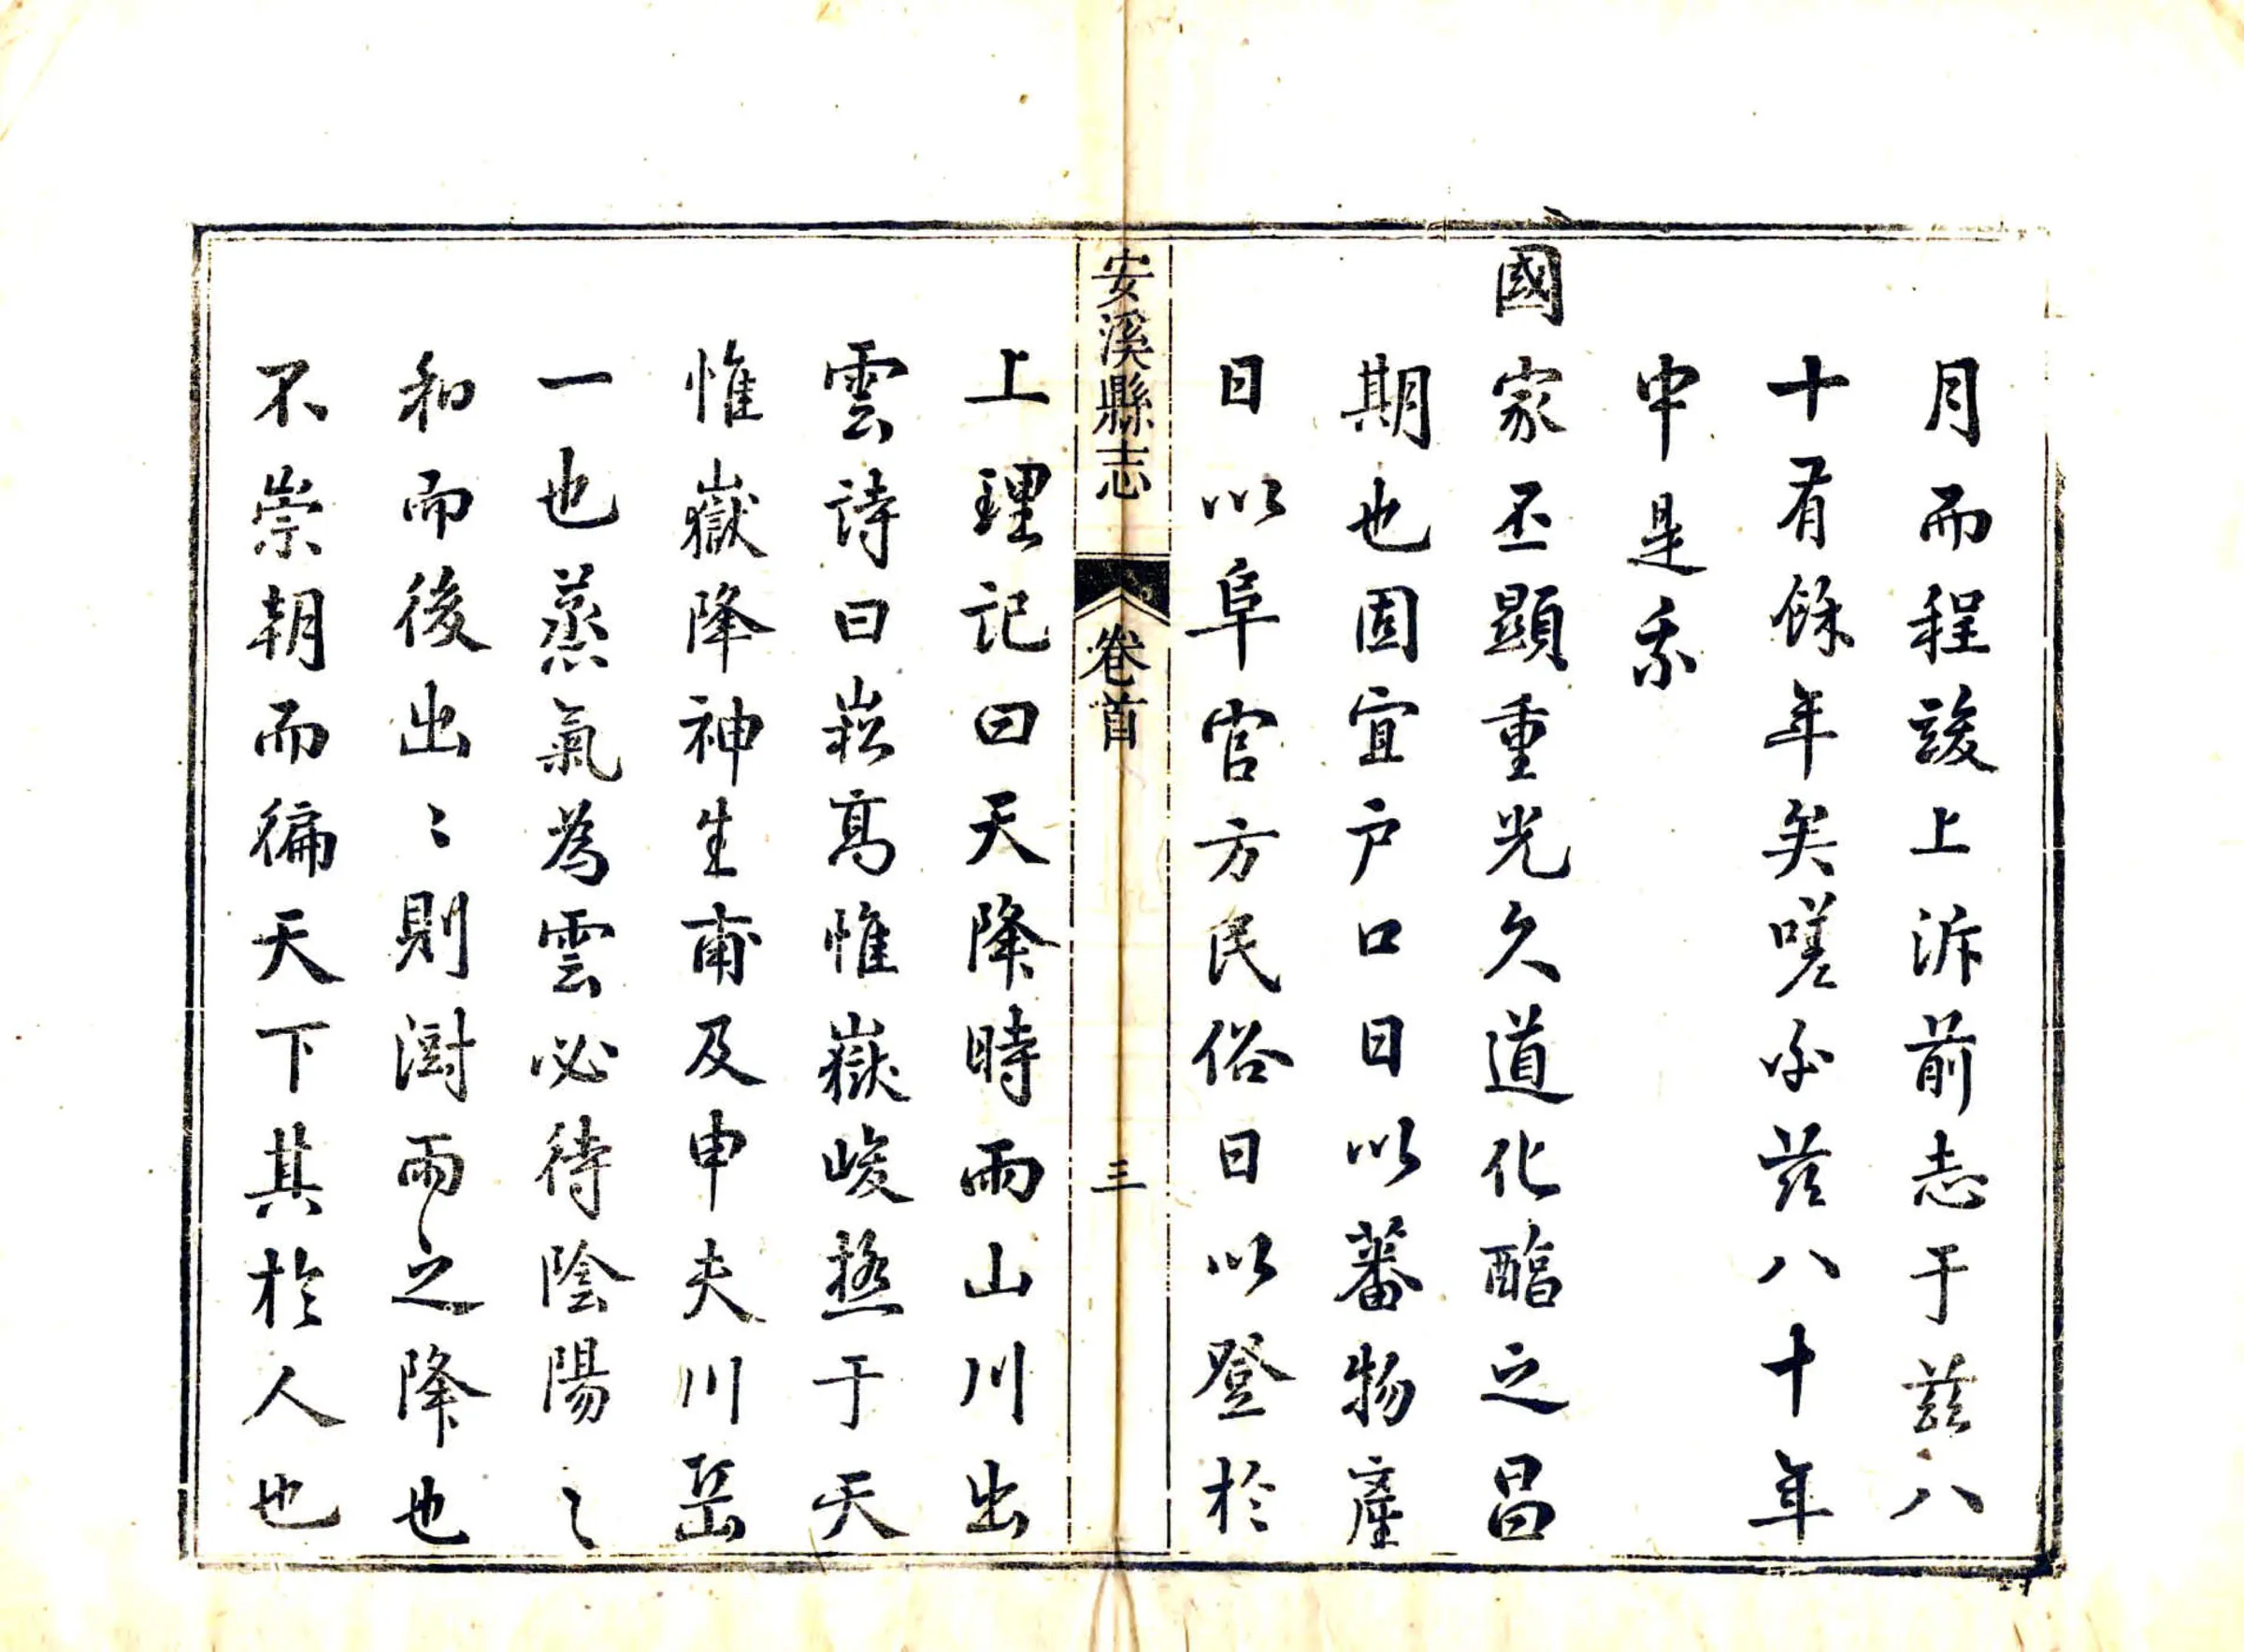 月而程竣上泝前志于茲八
十有餘年矣嗟乎茲八十年
中是我
國家丕顯重光久道化醕之昌
期也固宜户口日以蕃物產
日以阜官方民俗日以登於
安溪縣志 卷首 三
上理記曰天降時雨山川出
雲詩曰崧高惟嶽峻極于天
惟嶽降神生甫及申夫川岳
一也蒸氣為雲必待陰陽〻
和而後出〻則澍雨之降也
不崇朝而徧天下其於人也